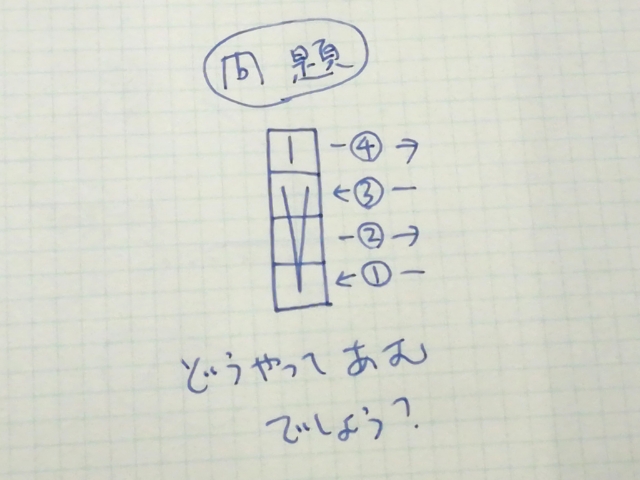 問題
| -④→
←③-
-②→
←①-
どうやってあむ
でしょう?